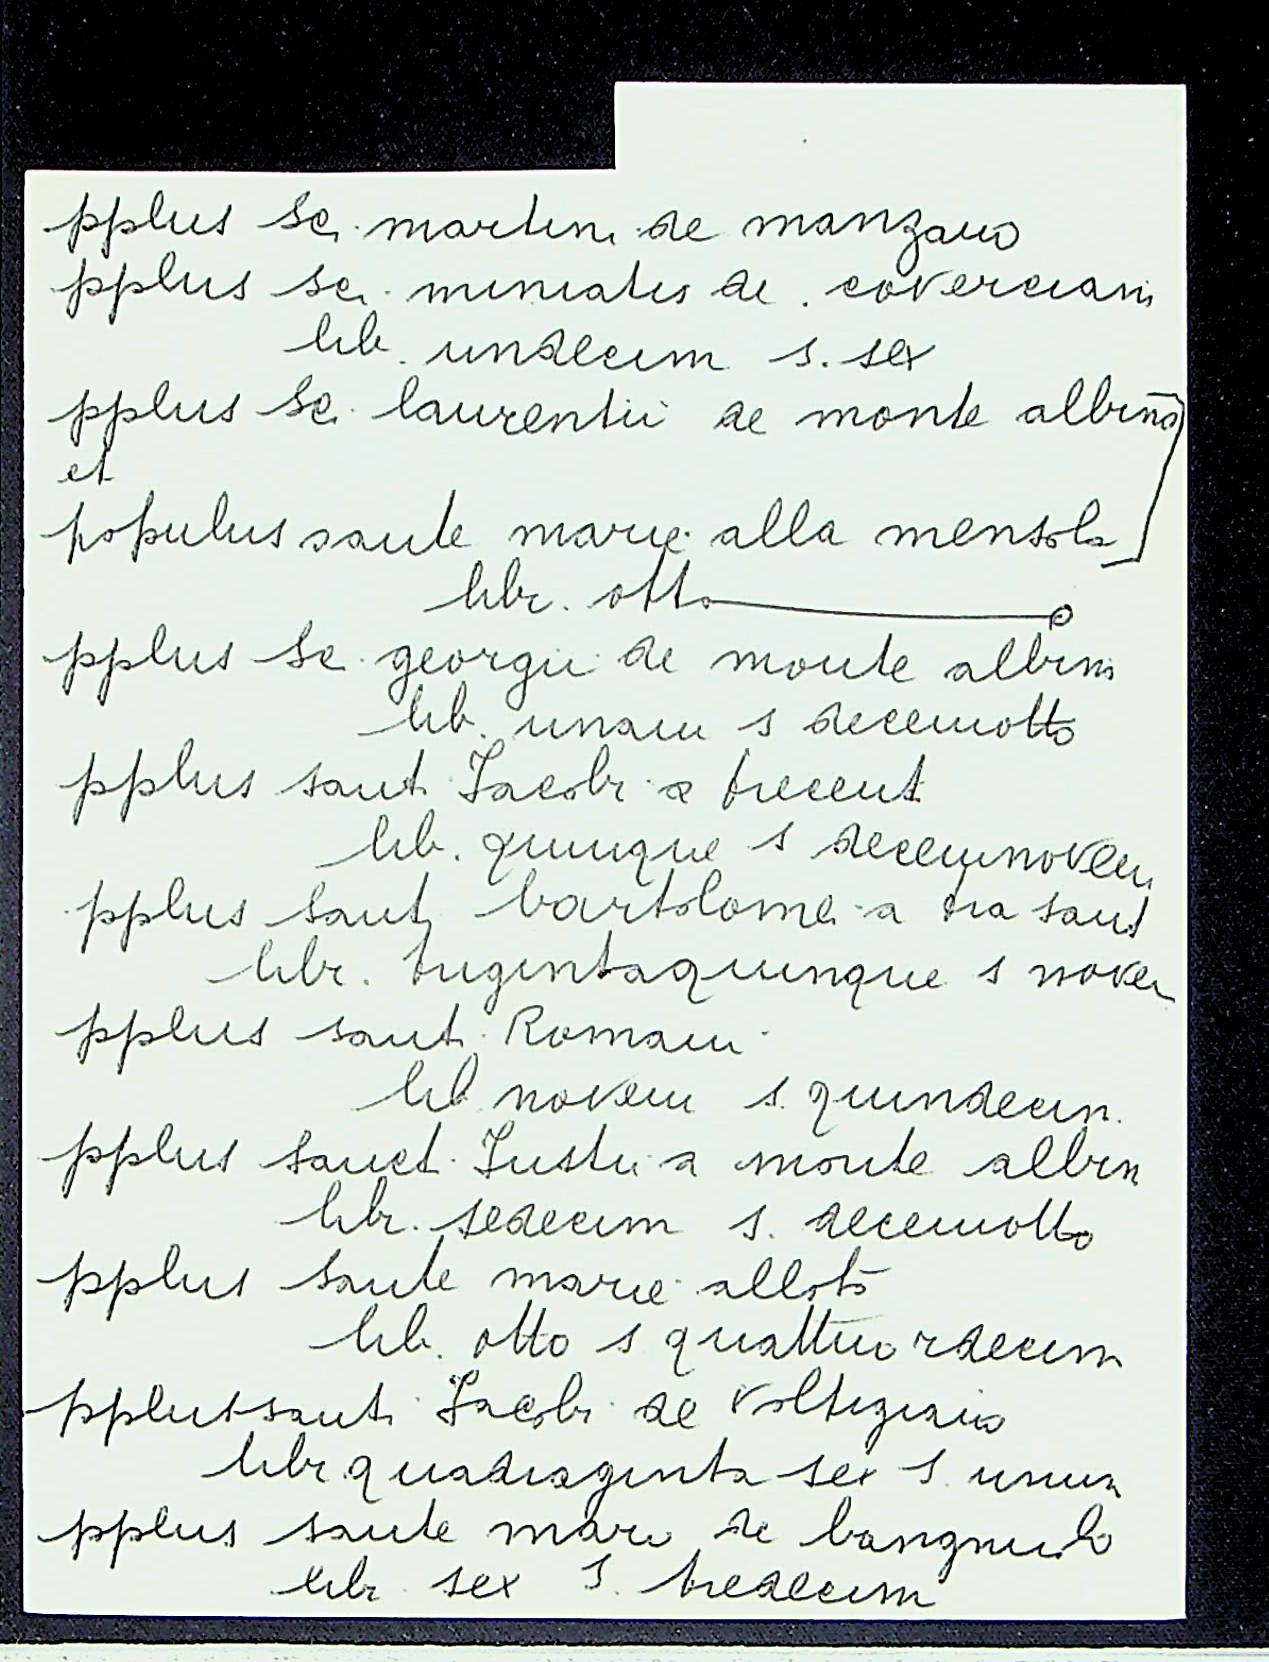 pplus Sci martini de manzano
pplus sci miniatis de coverciani
lib. undecim s. sex
pplus Sci laurentii de monte albino
et
populus sante marie alla mensola
libr. otto
pplus Sci georgii de monte albini
lib. unam s decemotto
pplus sant Jacobi a trecent
lib. quinque s decemnovem
pplus Santi bartolomei a tra sant
libr. trigintaquinque s novem
pplus santi Romani
lib novem s. quindecim.
pplus sanct. Justi a monte albin
libr. sedecim s. decemotto
pplus Sante marie allotō
lib. otto s quattuordecim
pplus santi Jacobi de Voltigiano
libr quadraginta sex s. unum
pplus sante mari de bangnuolo
libr sex s. tredecim